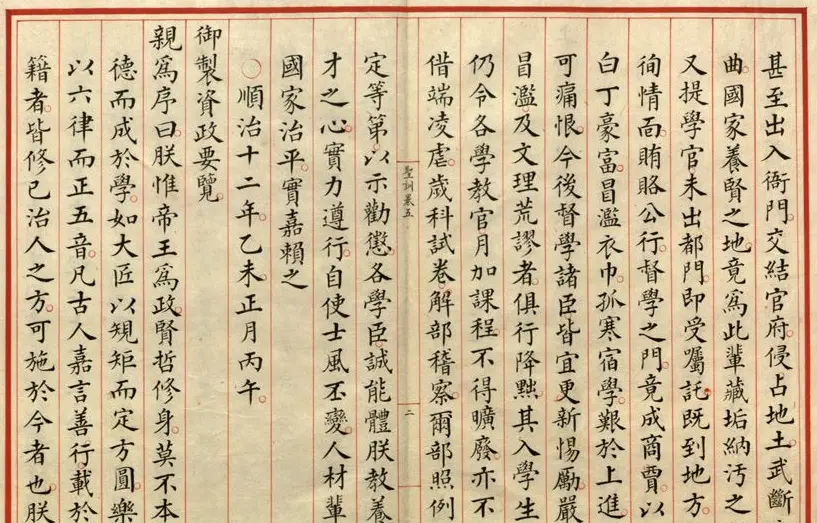 甚至出入衙門交結官府侵占地土武斷
曲國家養賢之地竟爲此輩藏垢納污之
又提學官未出都門即受囑託既到地方
徇情面賄賂公行督學之門竟成商賈以
白丁豪富冒濫衣巾孤寒宿學艱於上進
可痛恨今後督學諸臣皆宜更新惕勵嚴
冒濫及文理荒謬者俱行降黜其入學生
仍令各學教官月加課程不得曠廢亦不
借端凌虐歲科試卷解部稽察爾部照例
聖訓卷五
二
定等第以示勸懲各學臣誠能體朕教養
才之心實力遵行自使士風丕變人材輩
國家治平實嘉賴之
○順治十二年乙未正月丙午
御製資政要覽
親爲序曰朕惟帝王爲政賢哲修身莫不本
德而成於學如大匠以規矩而定方圓樂
以六律而正五音凡古人嘉言善行載於
籍者皆修已治人之方可施於今者也朕